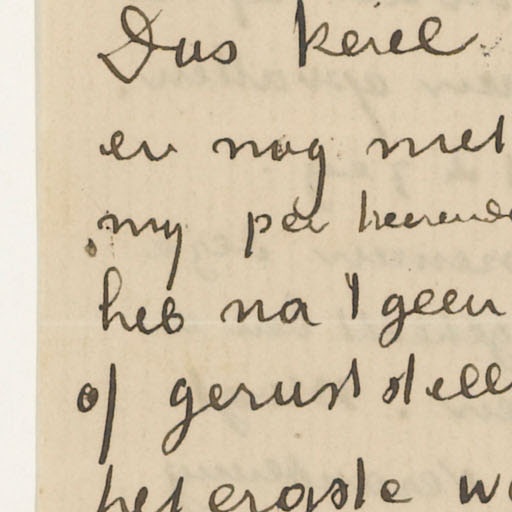 Dus kerel
er nog met
my per
heb na 't geen
of gerust stell
het ergste w